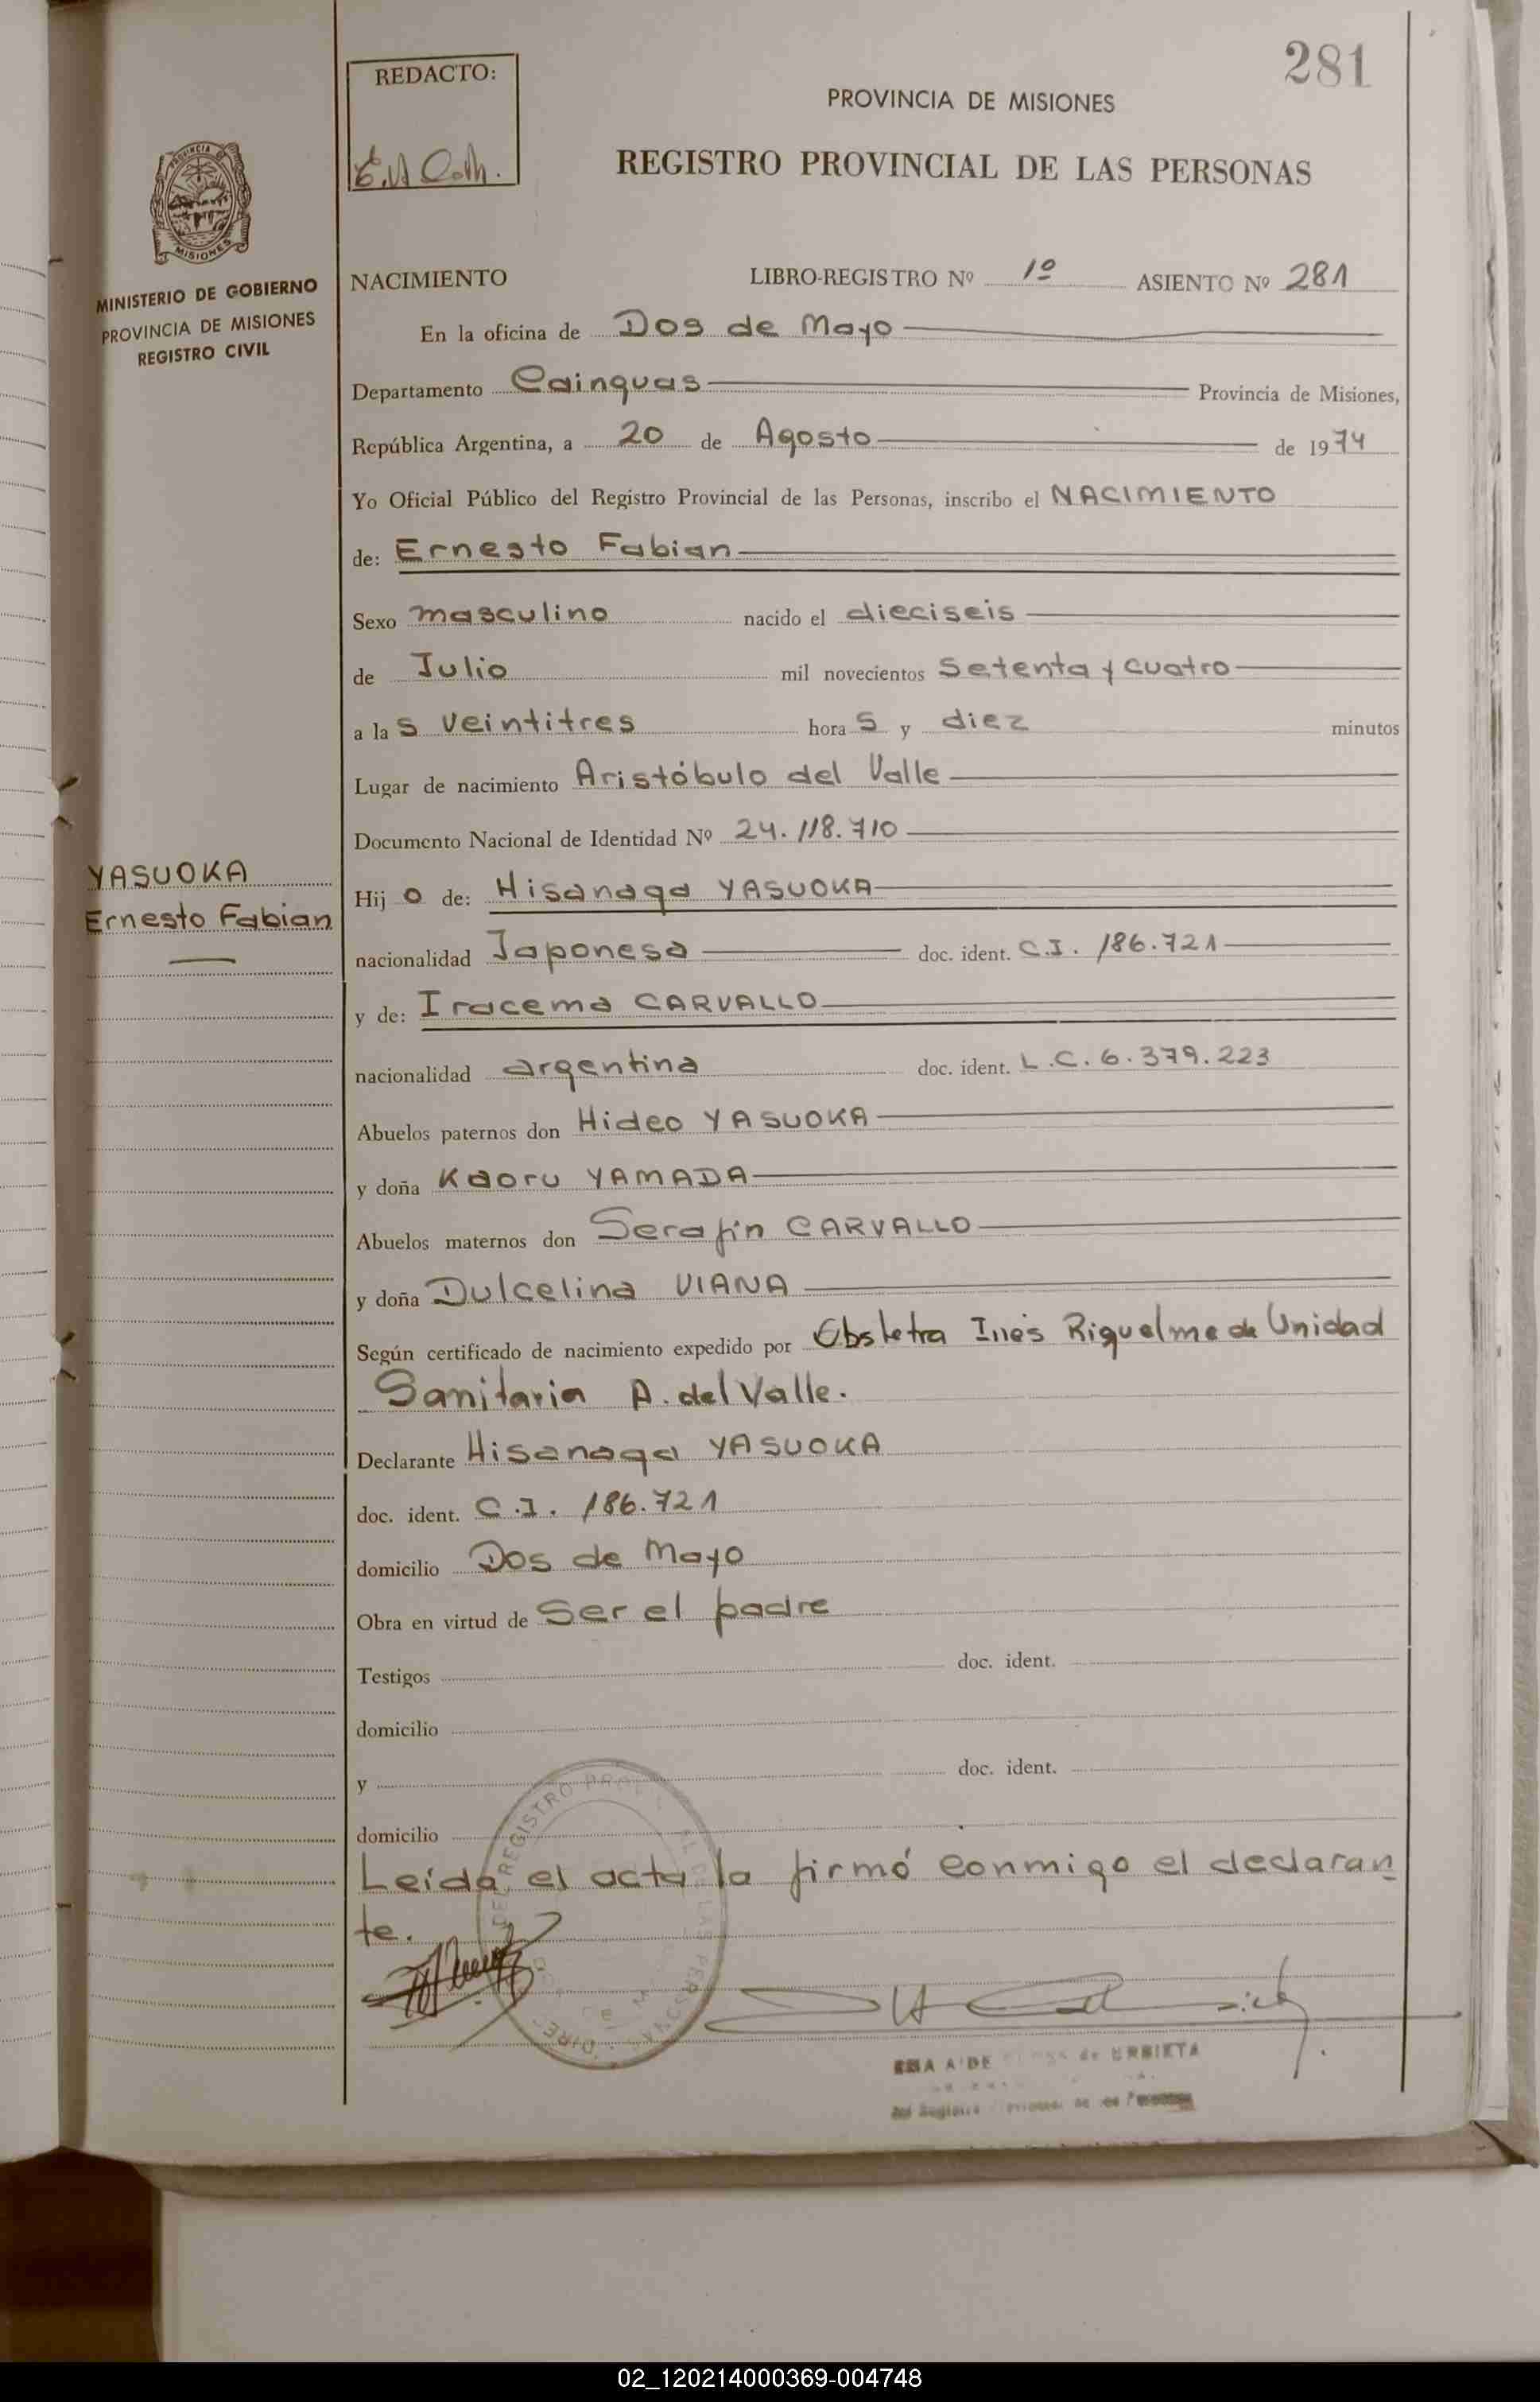 281
REDACTO:
PROVINCIA DE MISIONES
REGISTRO PROVINCIAL DE LAS PERSONAS
PROVINCIA
MISIONES
MINISTERIO DE GOBIERNO
PROVINCIA DE MISIONES
REGISTRO CIVIL
NACIMIENTO LIBRO-REGISTRO Nº 1º ASIENTO Nº 281
En la oficina de Dos de Mayo
Departamento Cainguas Provincia de Misiones,
República Argentina, a 20 de Agosto de 1974
Yo Oficial Público del Registro Provincial de las Personas, inscribo el NACIMIENTO
de: Ernesto Fabian
Sexo masculino nacido el dieciseis
de Julio mil novecientos setenta y cuatro
a las veintitres horas y diez minutos
Lugar de nacimiento Aristóbulo del Valle
Documento Nacional de Identidad Nº 24.118.710
YASUOKA
Ernesto Fabian
Hijo de: Hisanaga YASUOKA
nacionalidad Japonesa doc. ident. C.I. 186.721
y de: Iracema CARVALLO
nacionalidad argentina doc. ident. L.C. 6.379.223
Abuelos paternos don Hideo YASUOKA
y doña Kaoru YAMADA
Abuelos maternos don Serafin CARVALLO
y doña Dulcelina VIANA
Según certificado de nacimiento expedido por Obstetra Inés Riquelme de Unidad
Sanitaria A. del Valle.
Declarante Hisanaga YASUOKA
doc. ident. C.I. 186.721
domicilio Dos de Mayo
Obra en virtud de ser el padre
Testigos doc. ident.
domicilio
y doc. ident.
domicilio
Leída el acta la firmó conmigo el declaran
te.
REGISTRO
de URBIETA
02_120214000369-004748